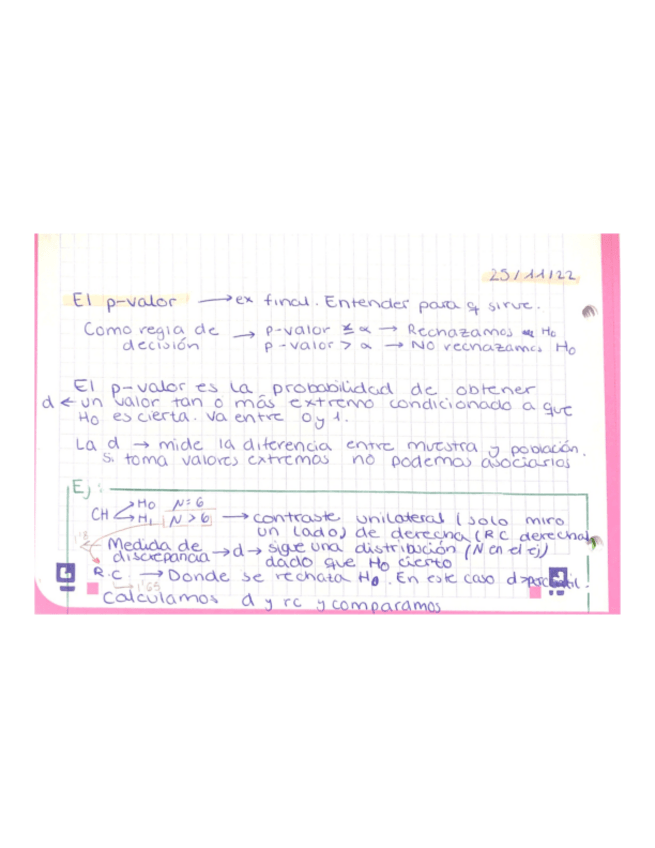 25/11/22
El p-valor → ex final. Entender para q sirve.
Como regla de → p-valor ≤ α → Rechazamos H0
decisión p-valor > α → No rechazamos H0
El p-valor es la probabilidad de obtener
d ← un valor tan o más extremo condicionado a que
H0 es cierta. Va entre 0 y 1.
La d → mide la diferencia entre muestra y población.
Si toma valores extremos no podemos asociarlos
Ej:
CH H0 N=6
H1 N>6 → contraste unilateral (solo miro
un lado) de derecha (RC derecha)
1'8 ← Medida de
discrepancia → d → sigue una distribución (N en el ej)
dado que H0 cierto
R.C → Donde se rechaza H0. En este caso d>percentil.
1'65
Calculamos d y rc y comparamos